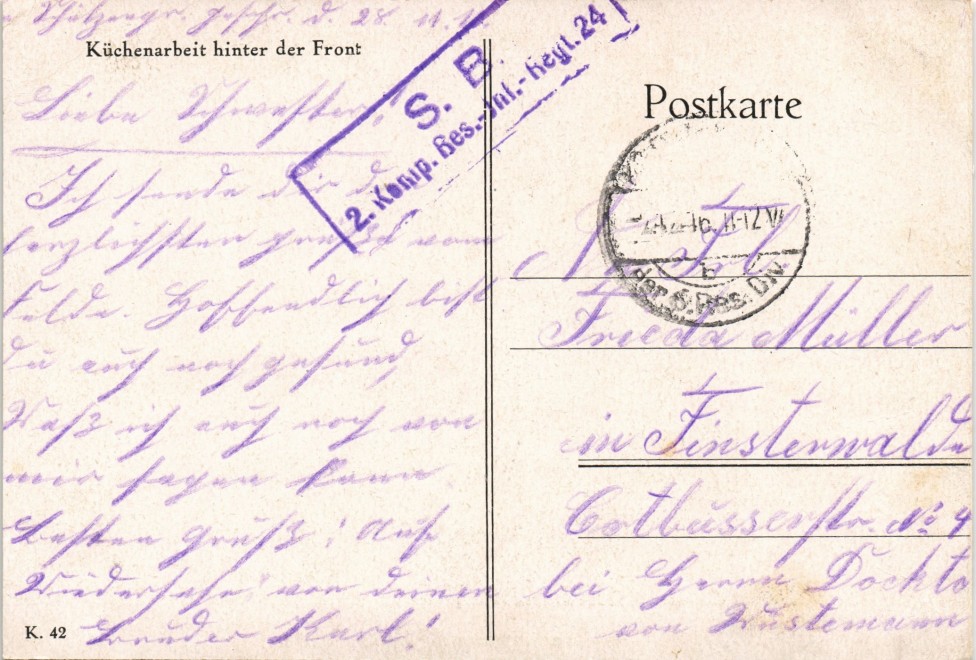 Schützengr. geschr. d. 28. 11. 1
Küchenarbeit hinter der Front
Liebe Schwester!
Ich sende dir d
herzlichsten grüße vom
Felde. Hoffendlich bist
du auch noch gesund,
Waß ich auch noch von
mir sagen kann
Besten gruß! Auf
Wiedersehn von deinem
Bruder Karl!
K. 42
S. B.
2. Komp. Res.-Inf.-Regt. 24
Postkarte
11-12 V
b
der 6. Res. Div
An Frl.
Frieda Müller
in Finsterwalde
Cottbusserstr. No 4
bei Herrn Dockto
von Wüstemann